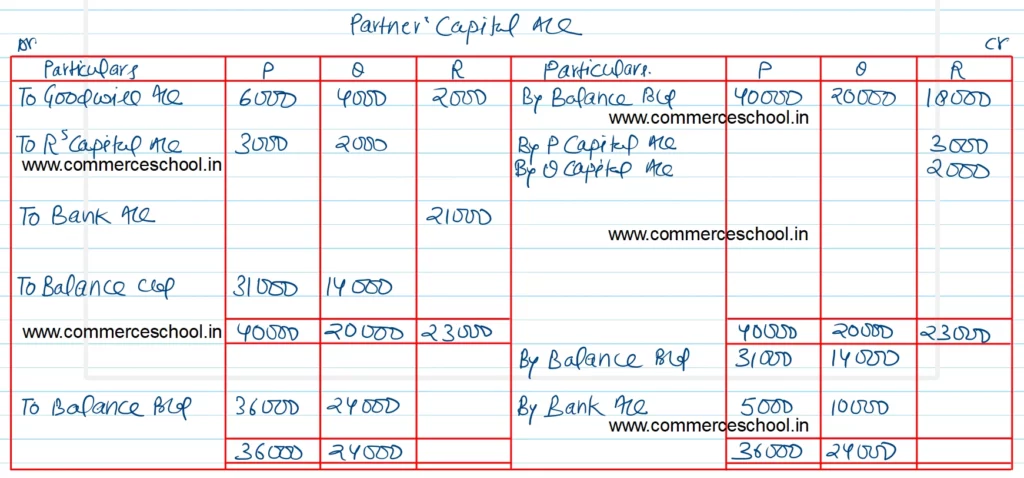 Partner's Capital A/c
Dr. Cr
Particulars P Q R Particulars. P Q R
To Goodwill A/c 6000 4000 2000 By Balance B/d 40000 20000 18000
www.commerceschool.in
To R's Capital A/c 3000 2000 By P Capital A/c 3000
www.commerceschool.in By Q Capital A/c 2000
To Bank A/c 21000
www.commerceschool.in
To Balance c/d 31000 14000
www.commerceschool.in 40000 20000 23000 40000 20000 23000
By Balance B/d 31000 14000
To Balance B/d 36000 24000 By Bank A/c 5000 10000
www.commerceschool.in
36000 24000 36000 24000